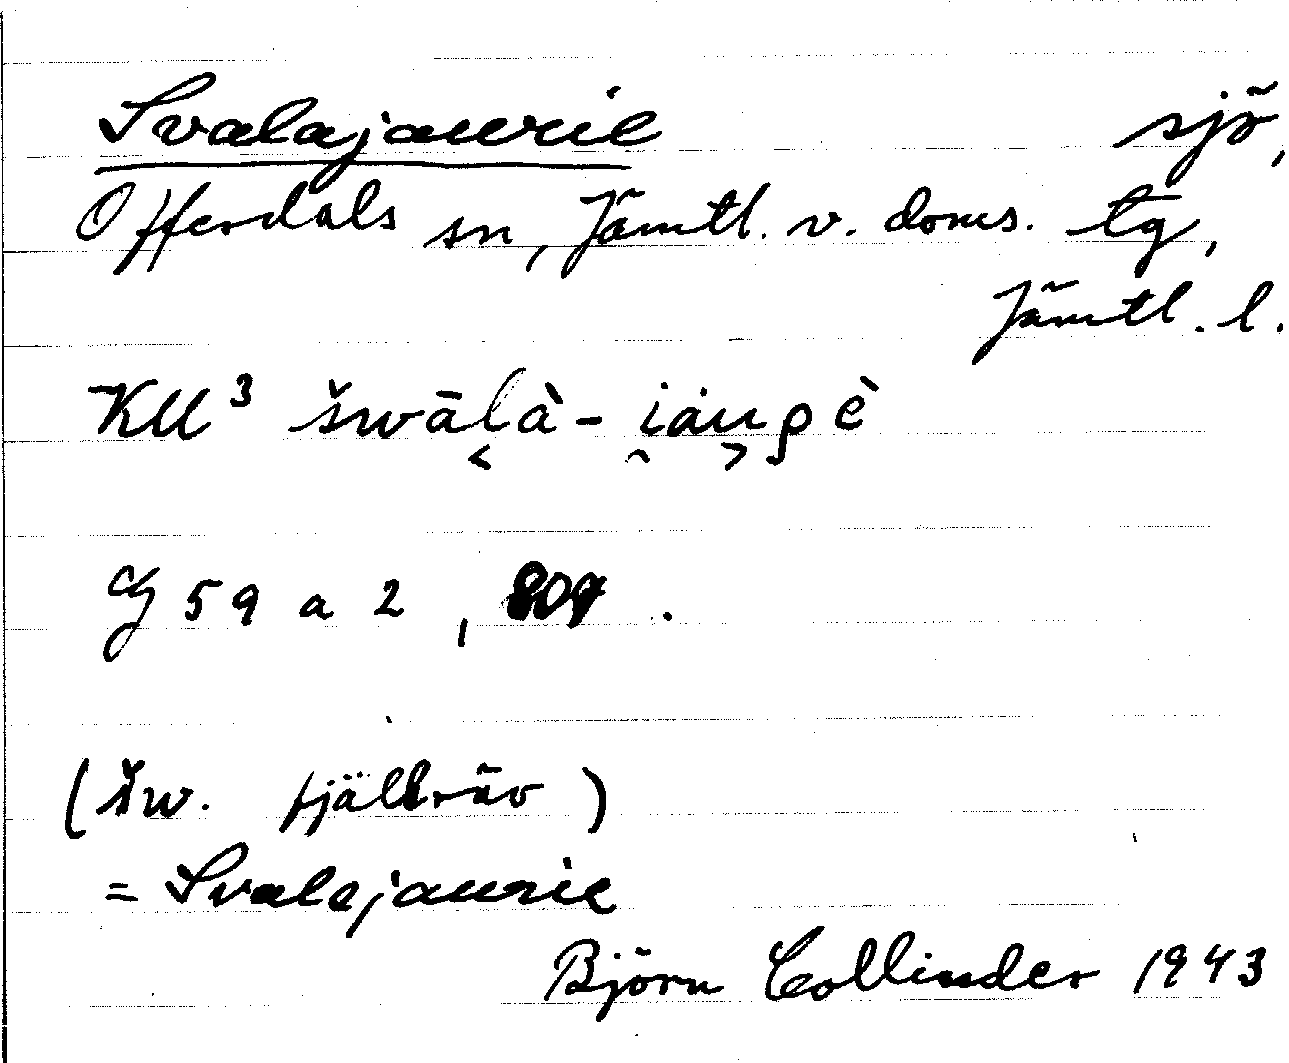 Svalajaurie sjö,
Offerdals sn, Jämtl. v. doms. tg,
Jämtl. l.
KM³ šwāl̬à-i̯áu̬ρè
G 59 a 2, 
(šw. fjällräv)
= Svalejaurie
Björn Collinder 1943